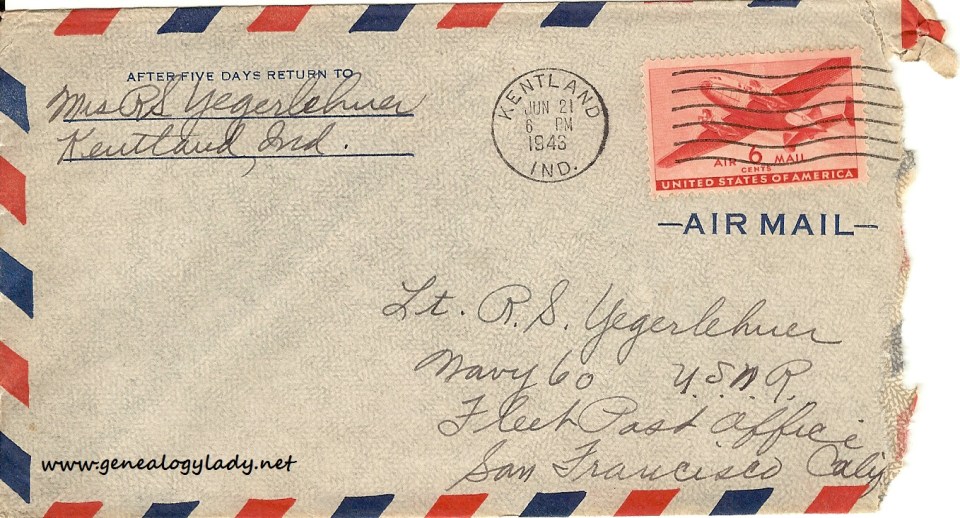 AFTER FIVE DAYS RETURN TO
Mrs R S Yegerlehner
Kentland, Ind.
KENTLAND
JUN 21
6 PM
1943
IND.
AIR 6 MAIL
CENTS
UNITED STATES OF AMERICA
—AIR MAIL—
Lt. R. S. Yegerlehner
Navy 60 U.S.N.R.
Fleet Post Office
San Francisco Calif
www.genealogylady.net